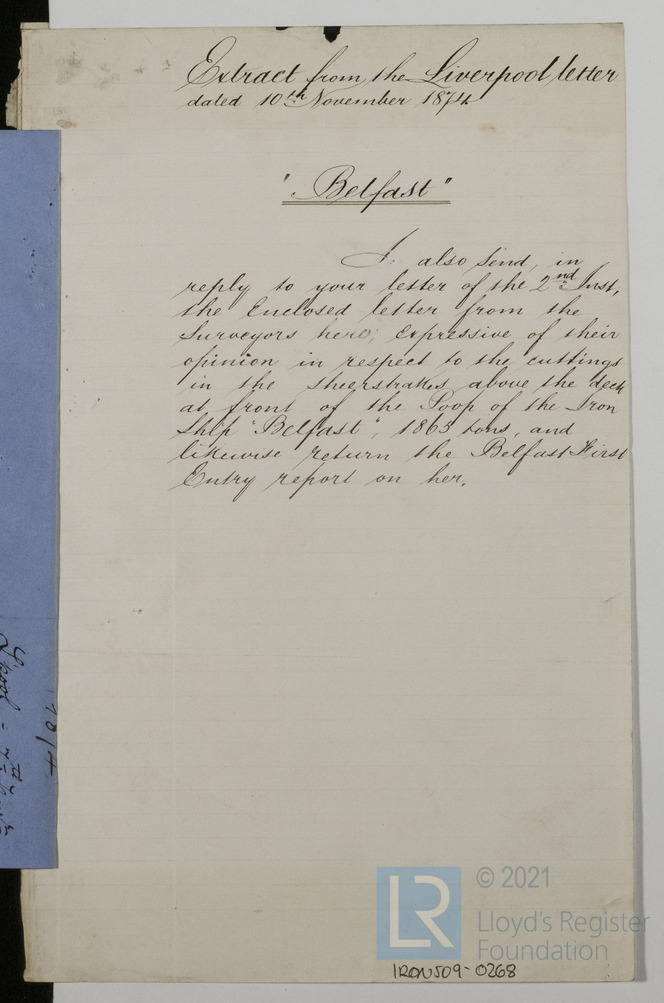 Extract from the Liverpool letter
dated 10th November 1874
"Belfast"
I also send, in
reply to your letter of the 2nd Inst,
the Enclosed letter from the
Surveyors here, expressive of their
opinion in respect to the cuttings
in the sheerstrakes above the deck
at front of the Poop of the Iron
Ship "Belfast", 1865 tons, and
likewise return the Belfast First
Entry report on her.
1874
LR
© 2021
Lloyd's Register
Foundation
IRON509-0268